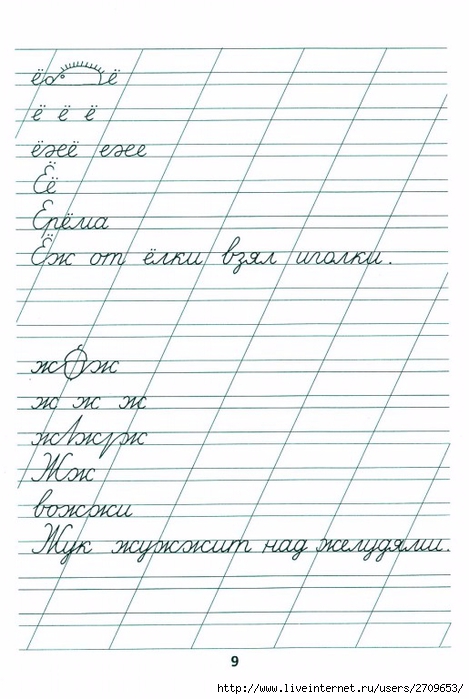 ё ё
ё ё ё
ёжё еже
Ёё
Ерёма
Ёж от ёлки взял иголки.
ж ж
ж ж ж
ж ж ж
Жж
вожжи
Жук жужжит над желудями.
9
http://www.liveinternet.ru/users/2709653/